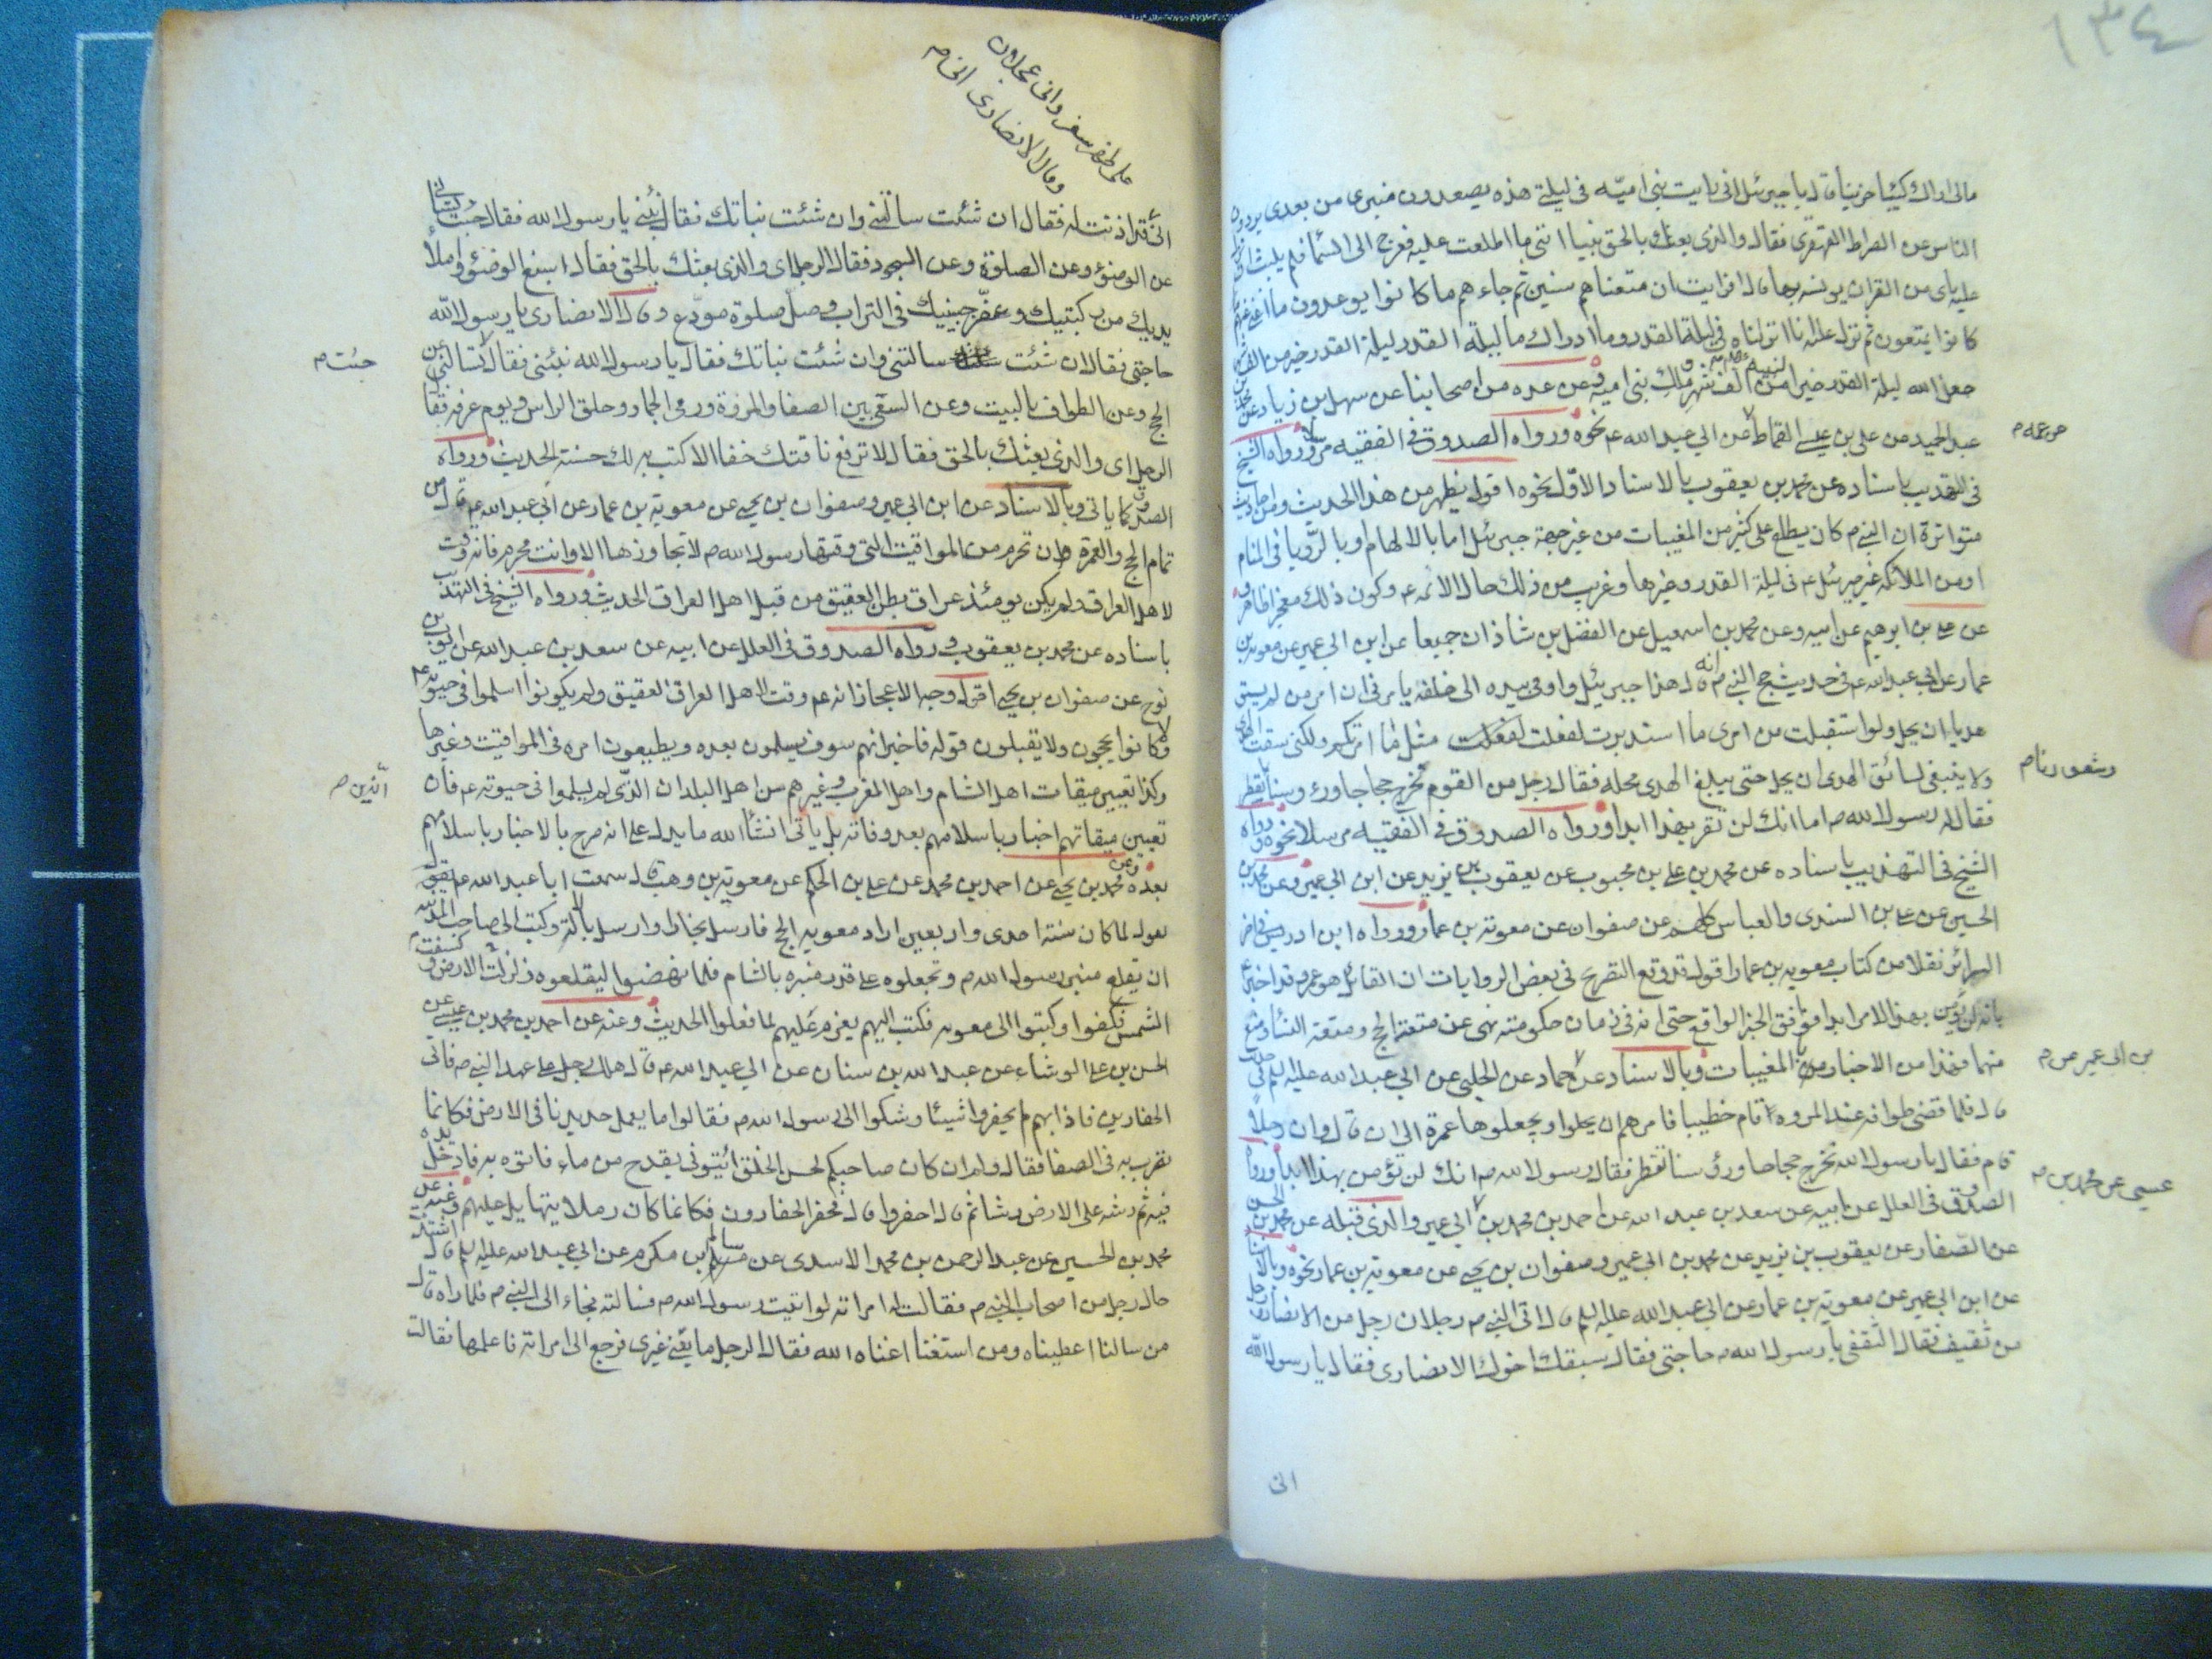 ١٣٤
مالي اراك كئيبا حزينا قال يا جبرئيل اني رايت بني امية في ليلتي هذه يصعدون منبري من بعدي يردون
الناس عن الصراط القهقرى فقال والذي بعثك بالحق نبيا انني ما اطلعت عليه فعرج الى السما فلم يلبث ان نزل
عليه باي من القران يونسه بها قال افرايت ان متعناهم سنين ثم جاءهم ما كانوا يوعدون ما اغنى عنهم ما
كانوا يمتعون ثم نزل عليه انا انزلناه في ليلة القدر وما ادراك ما ليلة القدر ليلة القدر خير من الف شهر
جعل الله ليلة القدر لنبيه خيرا من الف شهر ملك بني امية وعن عدة من اصحابنا عن سهل بن زياد عن محمد بن
عبد الحميد عن علي بن عيسى القماط عن عمه عن ابي عبد الله ع نحوه ورواه الصدوق في الفقيه مرسلا ورواه الشيخ
في التهذيب باسناده عن محمد بن يعقوب بالاسناد الاول نحوه اقول يظهر من هذا الحديث ومن احاديث
متواترة ان النبي ص كان يطلع على كثير من المغيبات من غير جهة جبرئيل اما بالالهام او بالرؤيا في المنام
او من الملائكة غير جبرئيل ع في ليلة القدر وغيرها وغريب من ذلك حال الائمة ع وكون ذلك معجزا ظاهر و
عن علي بن ابرهيم عن ابيه وعن محمد بن اسمعيل عن الفضل بن شاذان جميعا عن ابن ابي عمير عن معوية بن
عمار عن ابي عبد الله ع في حديث حج النبي ص انه قال هذا جبرئيل واومى بيده الى خلفه يامرني ان امر من لم يسق
هديا ان يحل ولو استقبلت من امري ما استدبرت لفعلت مثل ما امرتكم ولكني سقت الهدي
ولا ينبغي لسائق الهدى ان يحل حتى يبلغ الهدى محله فقال رجل من القوم نخرج حجاجا ورؤسنا تقطر
وشعورنا ص
فقال له رسول الله ص اما انك لن تقر بهذا ابدا ورواه الصدوق في الفقيه مرسلا نحوه ورواه
الشيخ في التهذيب باسناده عن محمد بن علي بن محبوب عن يعقوب بن يزيد عن ابن ابي عمير وعن محمد بن
الحسين عن علي بن السندي والعباس كلهم عن صفوان عن معوية بن عمار ورواه ابن ادريس في اخر
السرائر نقلا من كتاب معوية بن عمار اقول قد وقع التصريح في بعض الروايات ان القائل هو عمر وقد اخبر ع
بانه لن يؤمن بهذا الامر ابدا فوافق الخبر الواقع حتى انه في زمان حكومته نهى عن متعة الحج ومتعة النساء ومنع
منهما فهذا من الاخبار بالمغيبات وبالاسناد عن ابن ابي عمير عن حماد عن الحلبي عن ابي عبد الله عليه السلم في حديث
قال فلما قضى طوافه عند المروة قام خطيبا فامرهم ان يحلوا ويجعلوها عمرة الى ان قال وان رجلا
قام فقال يا رسول الله نخرج حجاجا ورؤسنا تقطر فقال رسول الله ص انك لن تؤمن بهذا ابدا ورواه
الصدوق في العلل عن ابيه عن سعد بن عبد الله عن احمد بن محمد بن عيسى عن محمد بن ابي عمير والذي قبله عن محمد بن الحسن
عن الصفار عن يعقوب بن يزيد عن محمد بن ابي عمير وصفوان بن يحيى عن معوية بن عمار نحوه وبالاسناد
عن ابن ابي عمير عن معوية بن عمار عن ابي عبد الله عليه السلم قال اتى النبي ص رجلان رجل من الانصار ورجل
من ثقيف فقال الثقفي يا رسول الله ص حاجتي فقال سبقك اخوك الانصاري فقال يا رسول الله
اني
على ظهر سفر واني عجلان
وقال الانصاري اني ص
اني قد اذنت له فقال ان شئت سالتني وان شئت نباتك فقال نبئني يا رسول الله فقال جئت تسالني
عن الوضوء وعن الصلوة وعن السجود فقال الرجل اي والذي بعثك بالحق فقال اسبغ الوضوء واملأ
يديك من ركبتيك وعفر جبينيك في التراب وصل صلوة مودع وقال الانصاري يا رسول الله
حاجتي فقال ان شئت سالتني وان شئت نباتك فقال يا رسول الله نبئني فقال جئت تسالني عن
الحج وعن الطواف بالبيت وعن السعي بين الصفا والمروة ورمي الجمار وحلق الراس ويوم عرفة فقال
الرجل اي والذي بعثك بالحق فقال لا ترفع ناقتك خفا الا كتب به لك حسنة الحديث ورواه
الصدوق كما ياتي وبالاسناد عن ابن ابي عمير وصفوان بن يحيى عن معوية بن عمار عن ابي عبد الله ع قال من
تمام الحج والعمرة ان تحرم من المواقيت التي وقتها رسول الله ص لا تجاوزها الا وانت محرم فانه وقت
لاهل العراق ولم يكن يومئذ عراق بطن العقيق من قبل اهل العراق الحديث ورواه الشيخ في التهذيب
باسناده عن محمد بن يعقوب ورواه الصدوق في العلل عن ابيه عن سعد بن عبد الله عن ايوب بن
نوح عن صفوان بن يحيى اقول وجه الاعجاز انه ع وقت لاهل العراق العقيق ولم يكونوا اسلموا في حيوته ع
وكانوا لا يحجون ولا يقبلون قوله فاخبر انهم سوف يسلمون بعده ويطيعون امره في المواقيت وغيرها
وكذا تعيين ميقات اهل الشام واهل المغرب وغيرهم من اهل البلدان الذين لم يسلموا في حيوته ع فان
تعيين ميقاتهم اخبار باسلامهم بعد وفاته بل ياتي انشأ الله ما يدل على انه صرح بالاخبار باسلامهم
بعده وعن محمد بن يحيى عن احمد بن محمد عن علي بن الحكم عن معوية بن وهب قال سمعت ابا عبد الله ع يقول
يقول لما كان سنة احدى واربعين اراد معوية الحج فارسل نجارا وارسل بالة وكتب الى صاحب المدينة
ان يقلع منبر رسول الله ص وتجعلوه على قدر منبره بالشام فلما نهضوا ليقلعوه زلزلت الارض وكسفت
الشمس فكفوا وكتبوا الى معوية فكتب اليهم يعزم عليهم لما فعلوا الحديث وعنه عن احمد بن محمد بن عيسى عن
الحسن بن علي الوشاء عن عبد الله بن سنان عن ابي عبد الله ع قال هلك رجل على عهد النبي ص فاتى
الحفارين فاذا بهم لم يحفروا شيئا وشكوا الى رسول الله ص فقالوا ما يعمل حديدنا في الارض فكانما
نضرب به في الصفا فقال ولم ان كان صاحبكم لحسن الخلق ائتوني بقدح من ماء فاتوه به فادخل يده
فيه ثم رشه على الارض رشا ثم قال احفروا قال فحفر الحفارون فكانما كان رملا يتهايل عليهم وعنه عن
محمد بن الحسين عن عبد الرحمن بن محمد الاسدي عن سالم بن مكرم عن ابي عبد الله عليه السلم قال اشتدت
حال رجل من اصحاب النبي ص فقالت له امراته لو اتيت رسول الله ص فسالته فجاء الى النبي ص فلما راه قال
من سالنا اعطيناه ومن استغنا اغناه الله فقال الرجل ما يعني غيري فرجع الى امراته فاعلمها فقالت